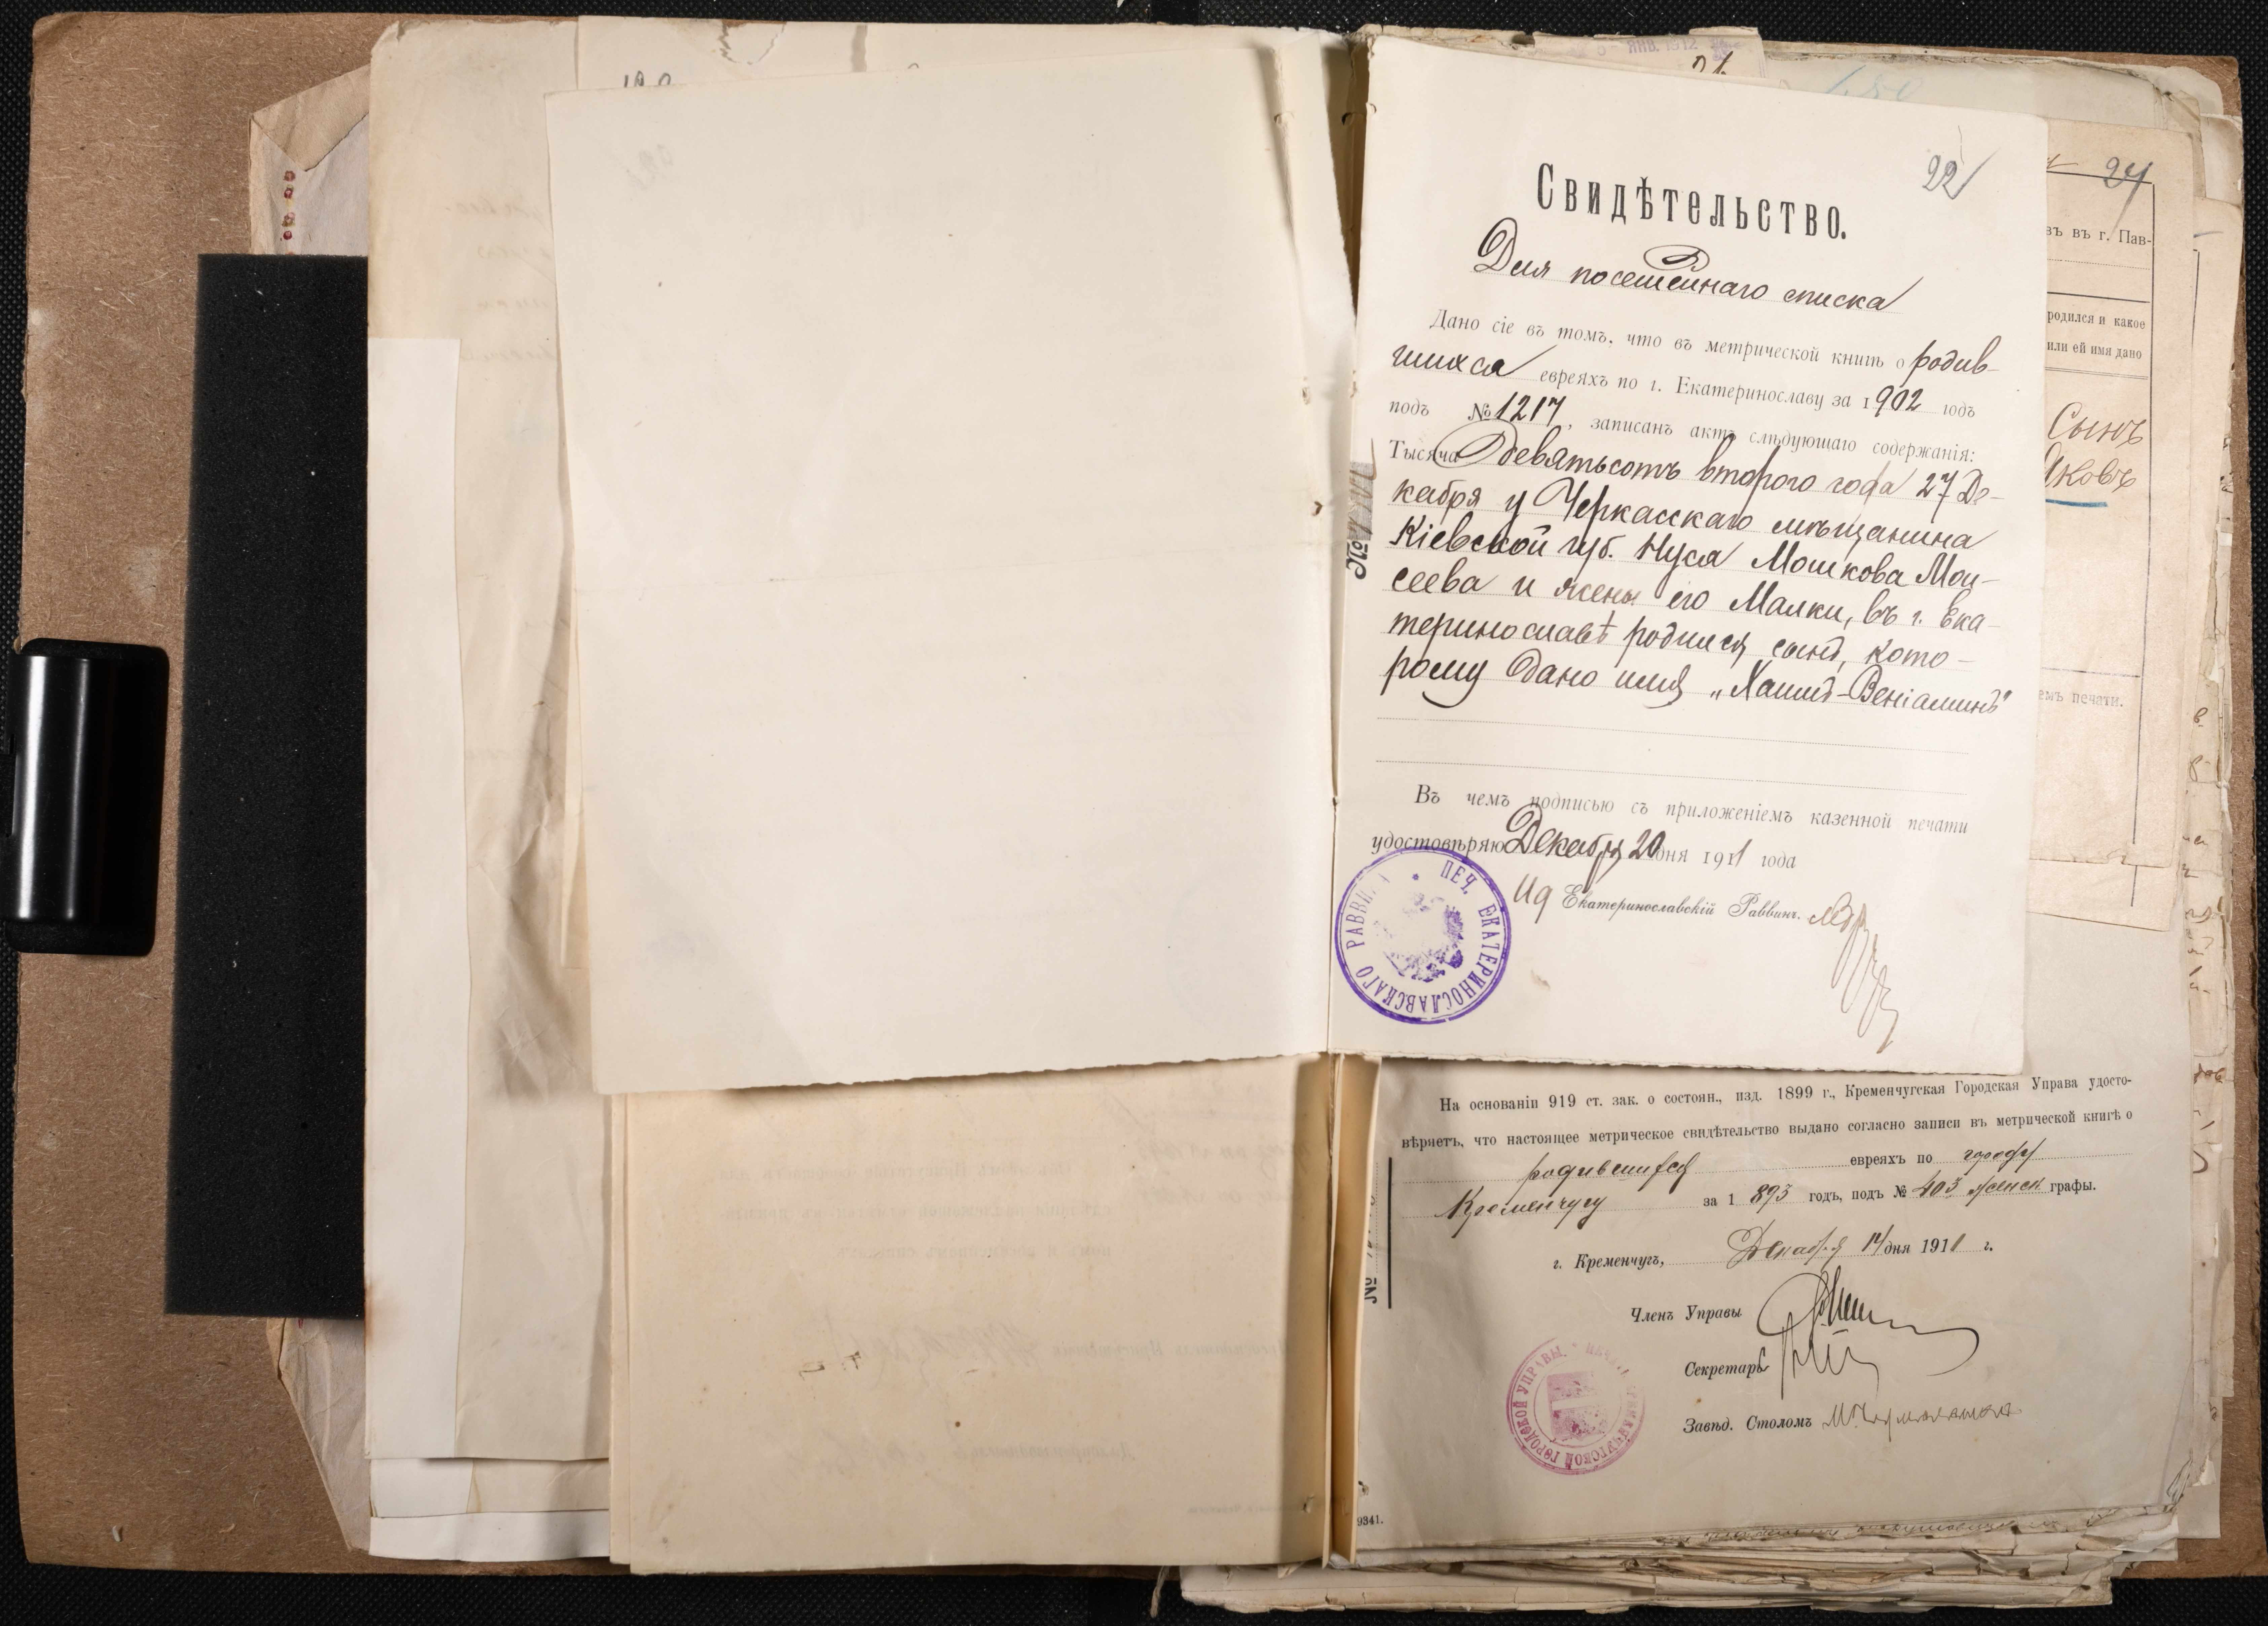 22
Свидѣтельство.
Для посемейнаго списка
Дано сіе въ томъ, что въ метрической книгѣ о родив-
шихся евреяхъ по г. Екатеринославу за 1902 годъ
подъ № 1217, записанъ актъ слѣдующаго содержанія:
Тысяча девятьсотъ второго года 27 Де-
кабря у Черкасскаго мѣщанина
Кіевской губ. Нуся Мошкова Мои-
сеева и жены его Малки, въ г. Ека-
теринославѣ родился сынъ, кото-
рому дано имя „Хаимъ-Веніаминъ"
Въ чемъ подписью съ приложеніемъ казенной печати
удостовѣряю Декабря 20 дня 1911 года
Ид Екатеринославскій Раввинъ.
ПЕЧ. ЕКАТЕРИНОСЛАВСКАГО РАВВИНА
№
ЯНВ. 1912
24
въ въ г. Пав-
родился и какое
или ей имя дано
Сынъ
Яковъ
емъ печати.
На основаніи 919 ст. зак. о состоян., изд. 1899 г., Кременчугская Городская Управа удосто-
вѣряетъ, что настоящее метрическое свидѣтельство выдано согласно записи въ метрической книгѣ о
родившихся евреяхъ по городу
Кременчугу за 1893 годъ, подъ № 403 женск графы.
г. Кременчугъ, Декабря 14 дня 1911 г.
Членъ Управы
Секретарь
Завѣд. Столомъ
КРЕМЕНЧУГСКОЙ ГОРОДСКОЙ УПРАВЫ.
№
9341.